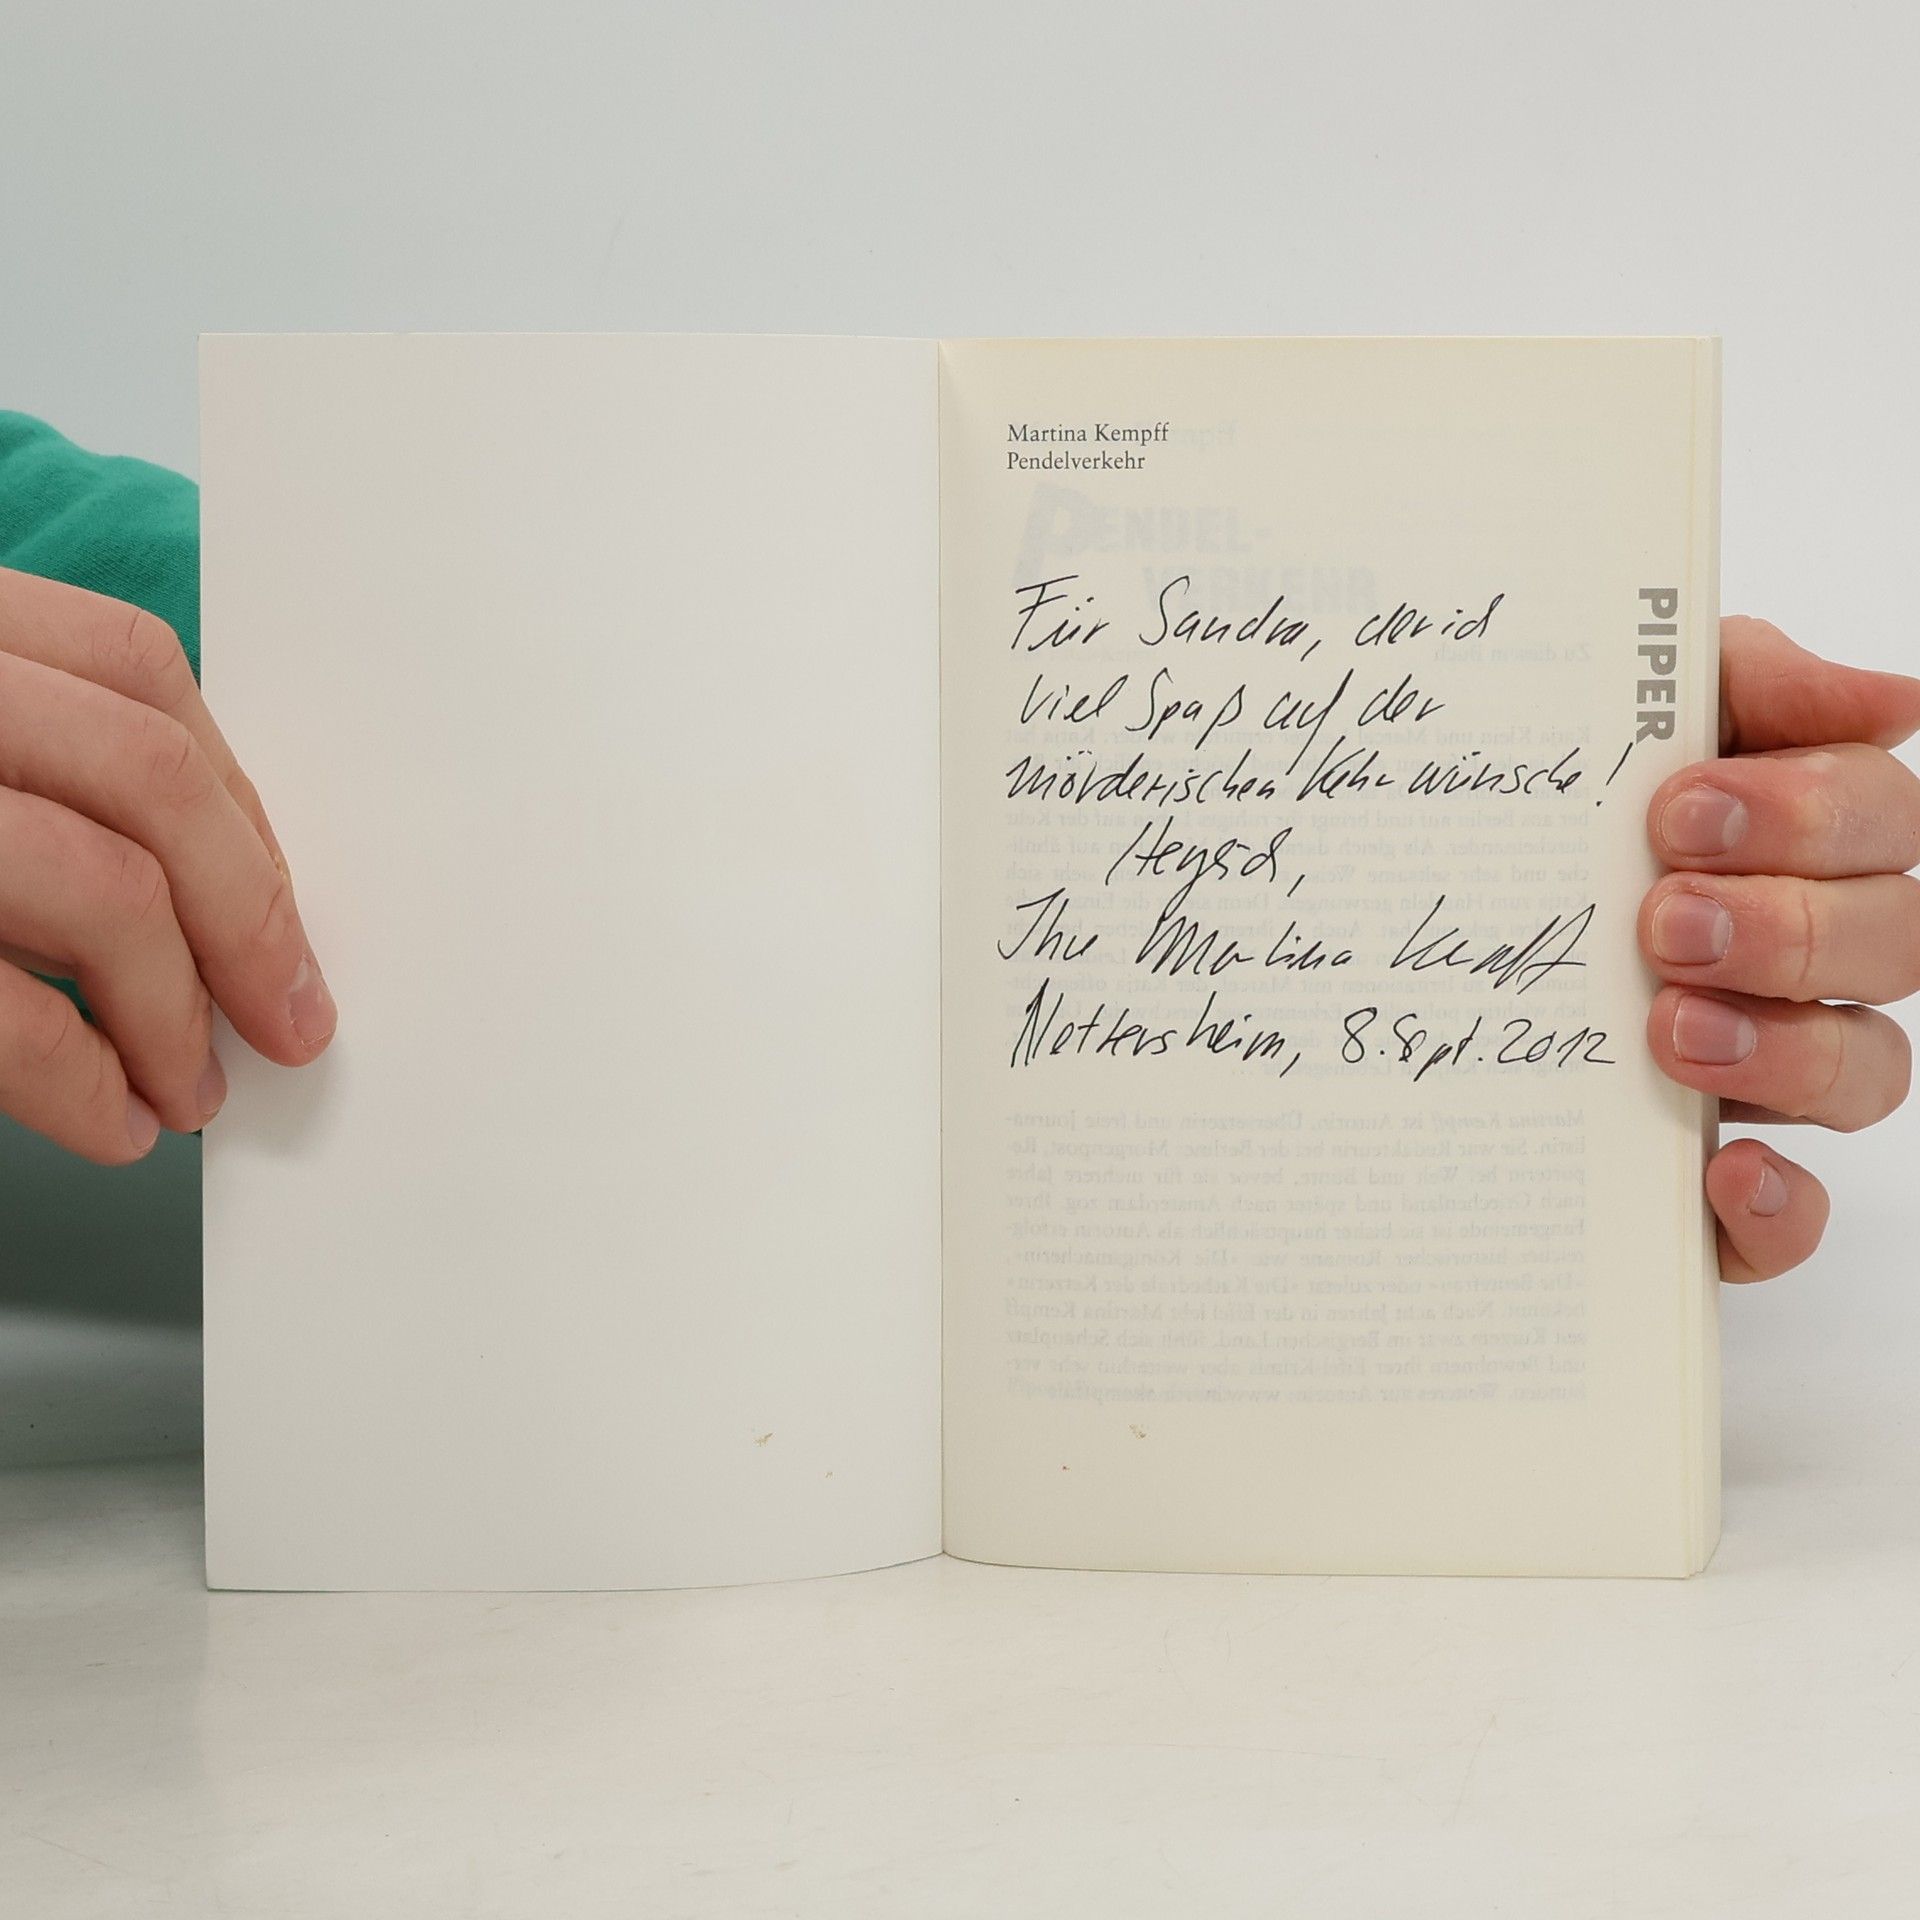 Martina Kempff
Pendelverkehr
PIPER
Für Sandra, der ich
viel Spaß auf der
mörderischen Kehr wünsche!
Herzlich,
Ihre Martina Kempff
Nettersheim, 8. Sept. 2012